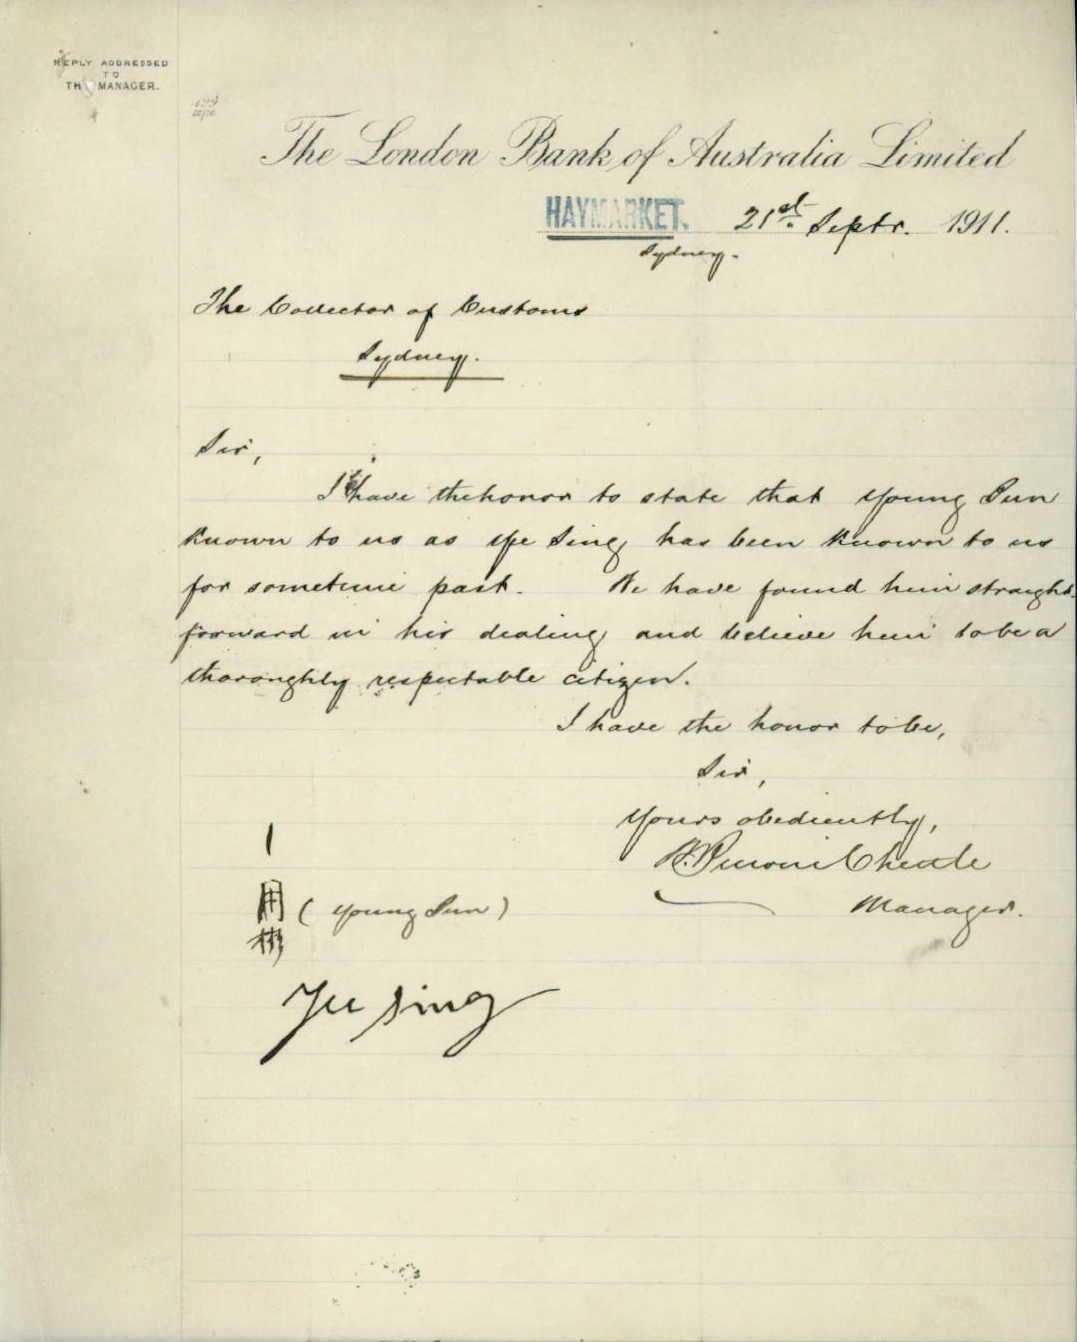 REPLY ADDRESSED
TO
THE MANAGER.
The London Bank of Australia Limited
HAYMARKET. 21st Septr. 1911.
Sydney.
The Collector of Customs
Sydney.
Sir,
I have the honor to state that Young Sun
known to us as Yee Sing has been known to us
for sometime past. We have found him straight-
forward in his dealing and believe him to be a
thoroughly respectable citizen.
I have the honor to be,
Sir,
Yours obediently,
Manager.
(Young Sun)
Yee Sing